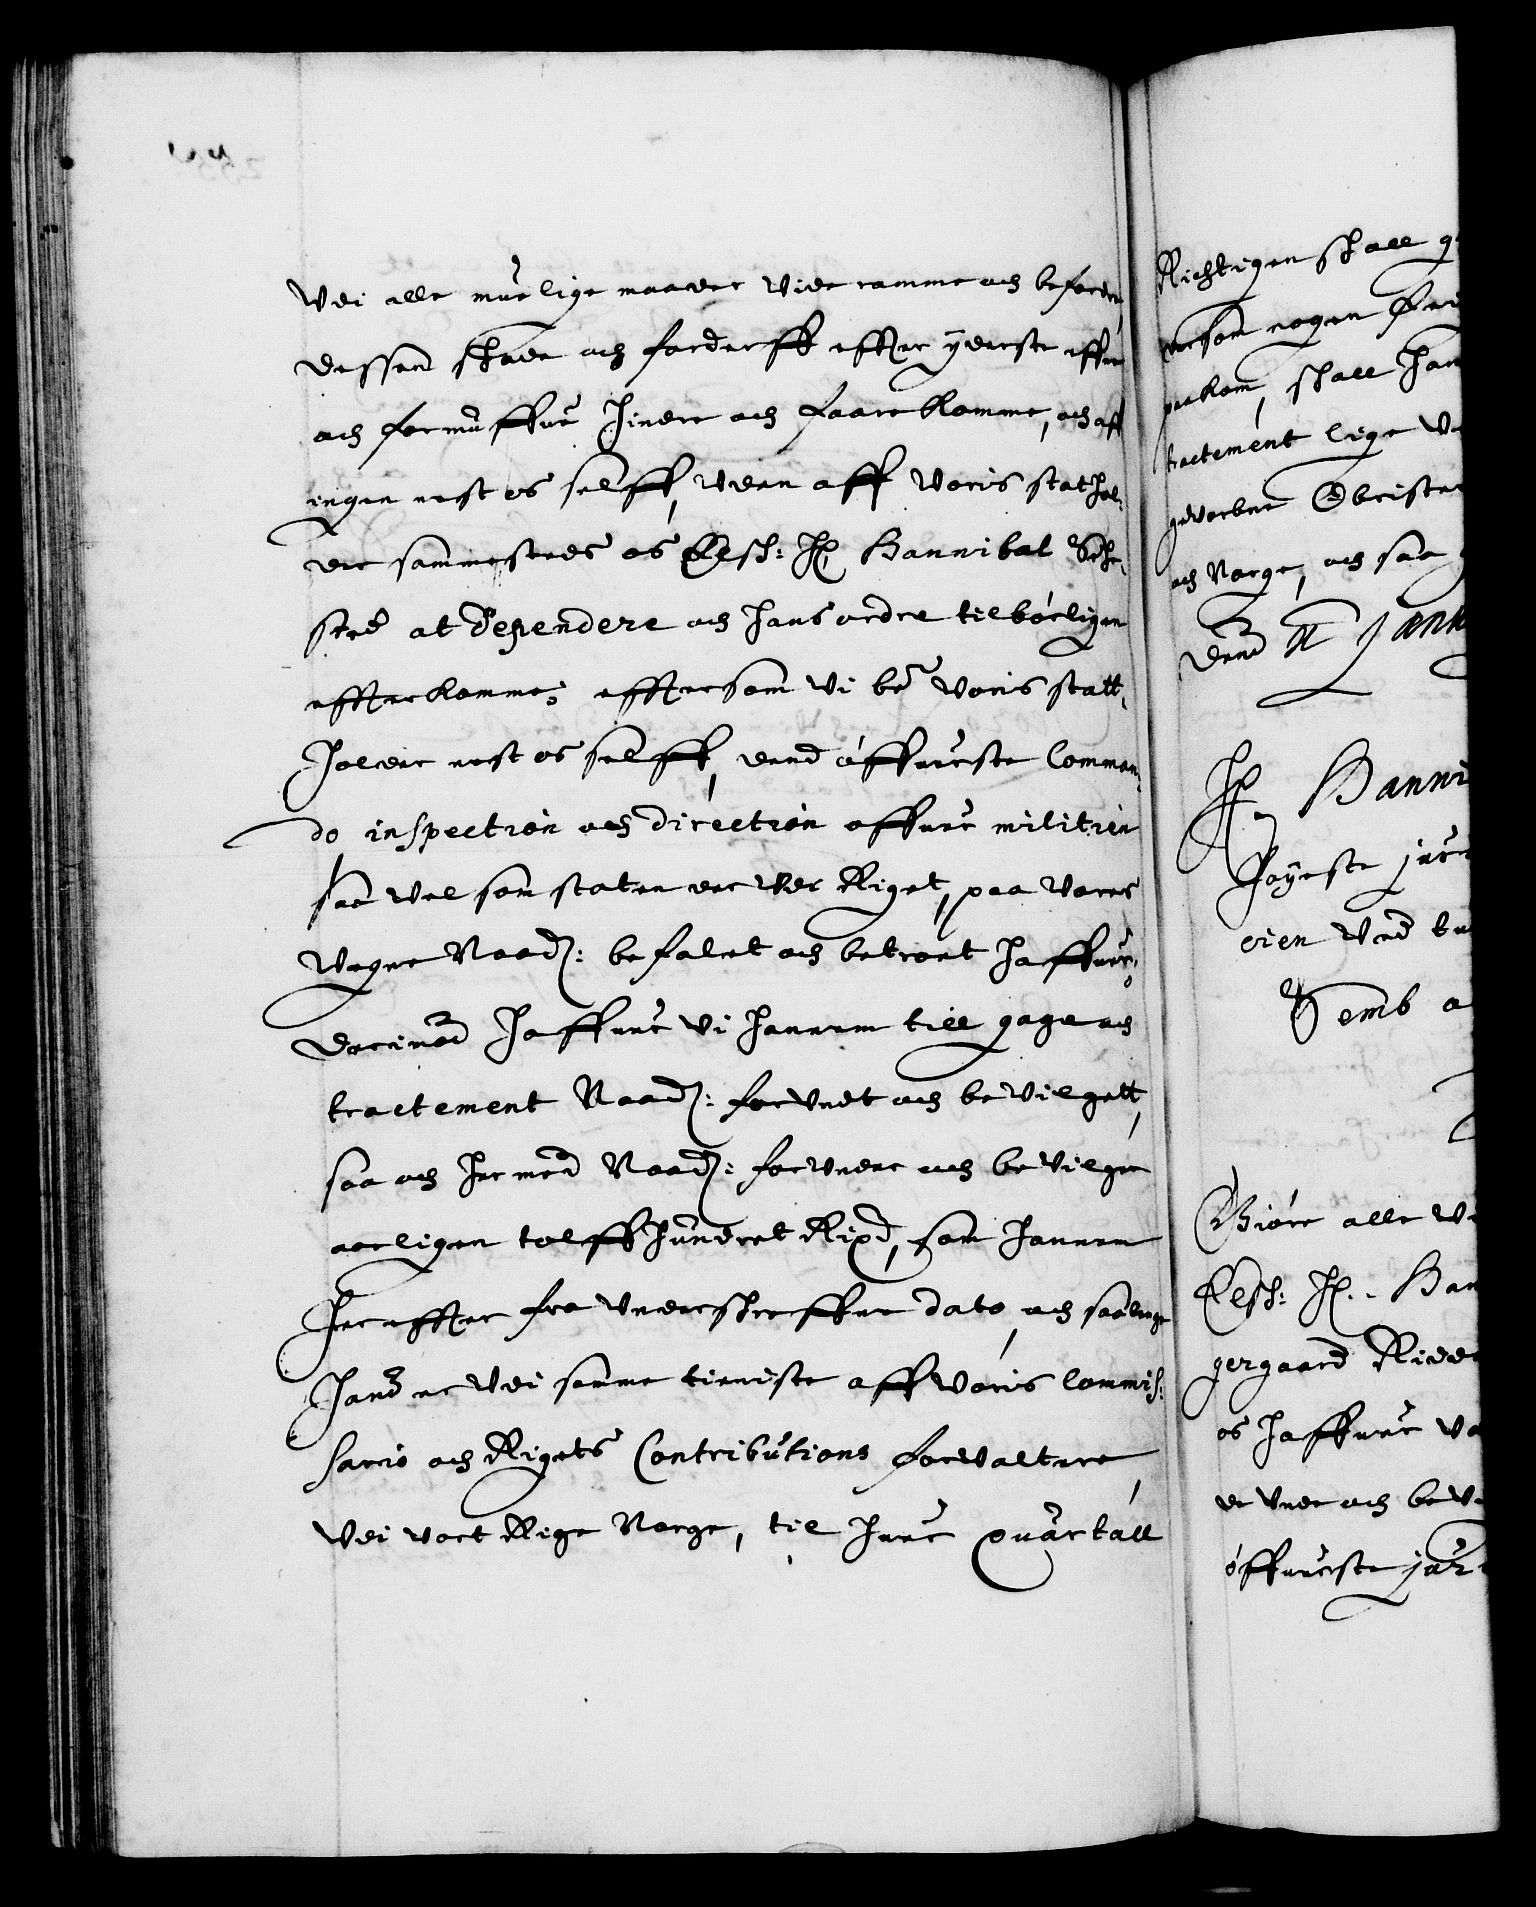 Vdi alle muelige maader vide ramme och befordre,
dessen skade och forderff effter yderste effne
och formuffue hindre och faarekomme, och aff
ingen nest os selff, uden aff voris stathol¬
der sammesteds os Elsk: Hr Hannibal Sehe¬
sted at dependere och hans ordre tilbörligen
effterkomme; efftersom vi bete voris statt¬
holder nest os selff, dend öffuerste Comman¬
do inspection och direction offuer militien
saa vel som staten der vdi Riget, paa vores
vegne Naadr: befalet och betroet haffuer,
derimod haffuer vi hannem till gage och
tractement Naadr: forundt och bevilgett,
saa och hermed Naadr: forunder och bevilger
aarligen tolffhundret Rixdr, som hannem
hereffter fra underskreffne dato, och saalenge
hand er vdi samme tieniste aff voris Commis¬
sario och Rigets Contributions forvaltere,
vdi vort Rige Norge, til huer quartall
Richtigen skall
ersom nogen
paakom, skall han
tractement lige
gevorbne Obrister
och Norge, och saa
Dend
Hr Hanni
höyeste
erien
Semb
Giöre alle
Elsk: Hr. Han
gergaard Ridd
os haffuer
de unde och bevi
öffuerste